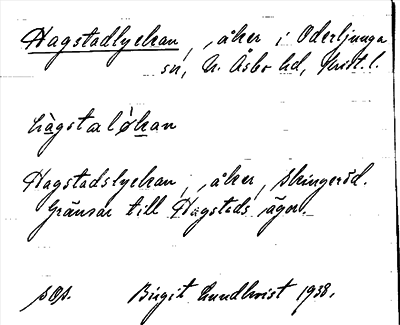 Hagstadlyckan, åker i Oderljunga
sn, N. Åsbo hd, Krist. l.
hàgstaløkan
Hagstadslyckan, åker, Skingeröd.
Gränsar till Hagstads ägor.
Birgit Lundkvist 1938.